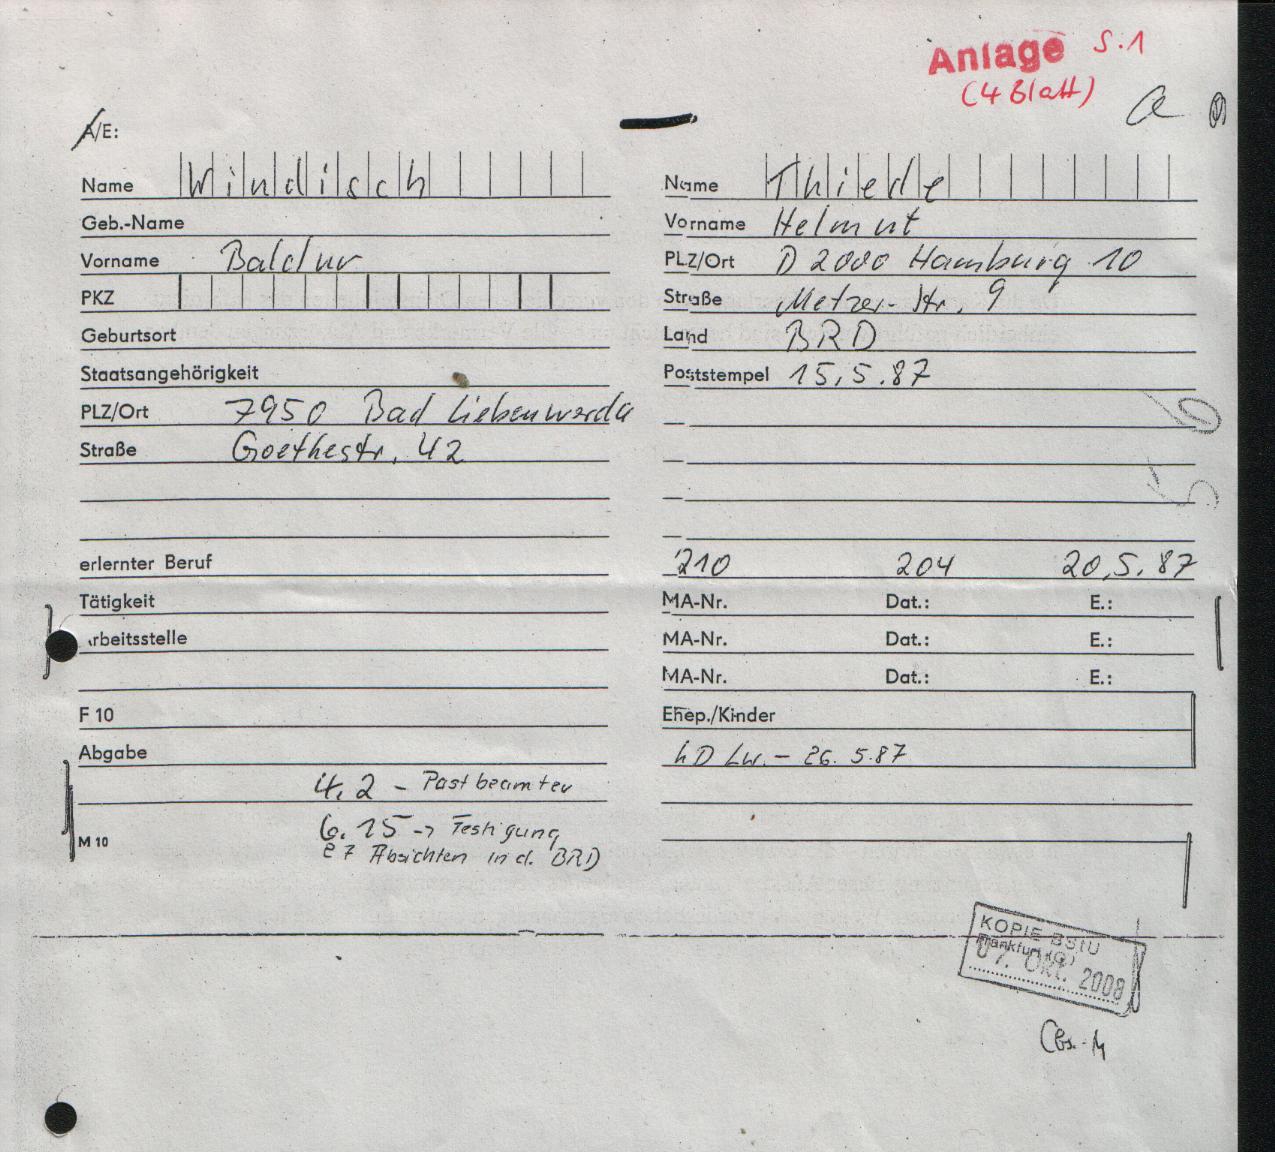 Anlage S.1
(4 Blatt)
A/E:
Name Windisch
Geb.-Name
Vorname Baldur
PKZ
Geburtsort
Staatsangehörigkeit
PLZ/Ort 7950 Bad Liebenwerda
Straße Goethestr. 42
erlernter Beruf
Tätigkeit
Arbeitsstelle
F 10
Abgabe
4.2 - Postbeamter
6.15 -> Festigung
M 10
27 Absichten in d. BRD
Name Thiede
Vorname Helmut
PLZ/Ort D 2000 Hamburg 10
Straße Metzer-Str. 9
Land BRD
Poststempel 15.5.87
210 204 20.5.87
MA-Nr. Dat.: E.:
MA-Nr. Dat.: E.:
MA-Nr. Dat.: E.:
Ehep./Kinder
LD Lw. - 26.5.87
56
KOPIE BStU
Frankfurt (O)
07. Okt. 2008